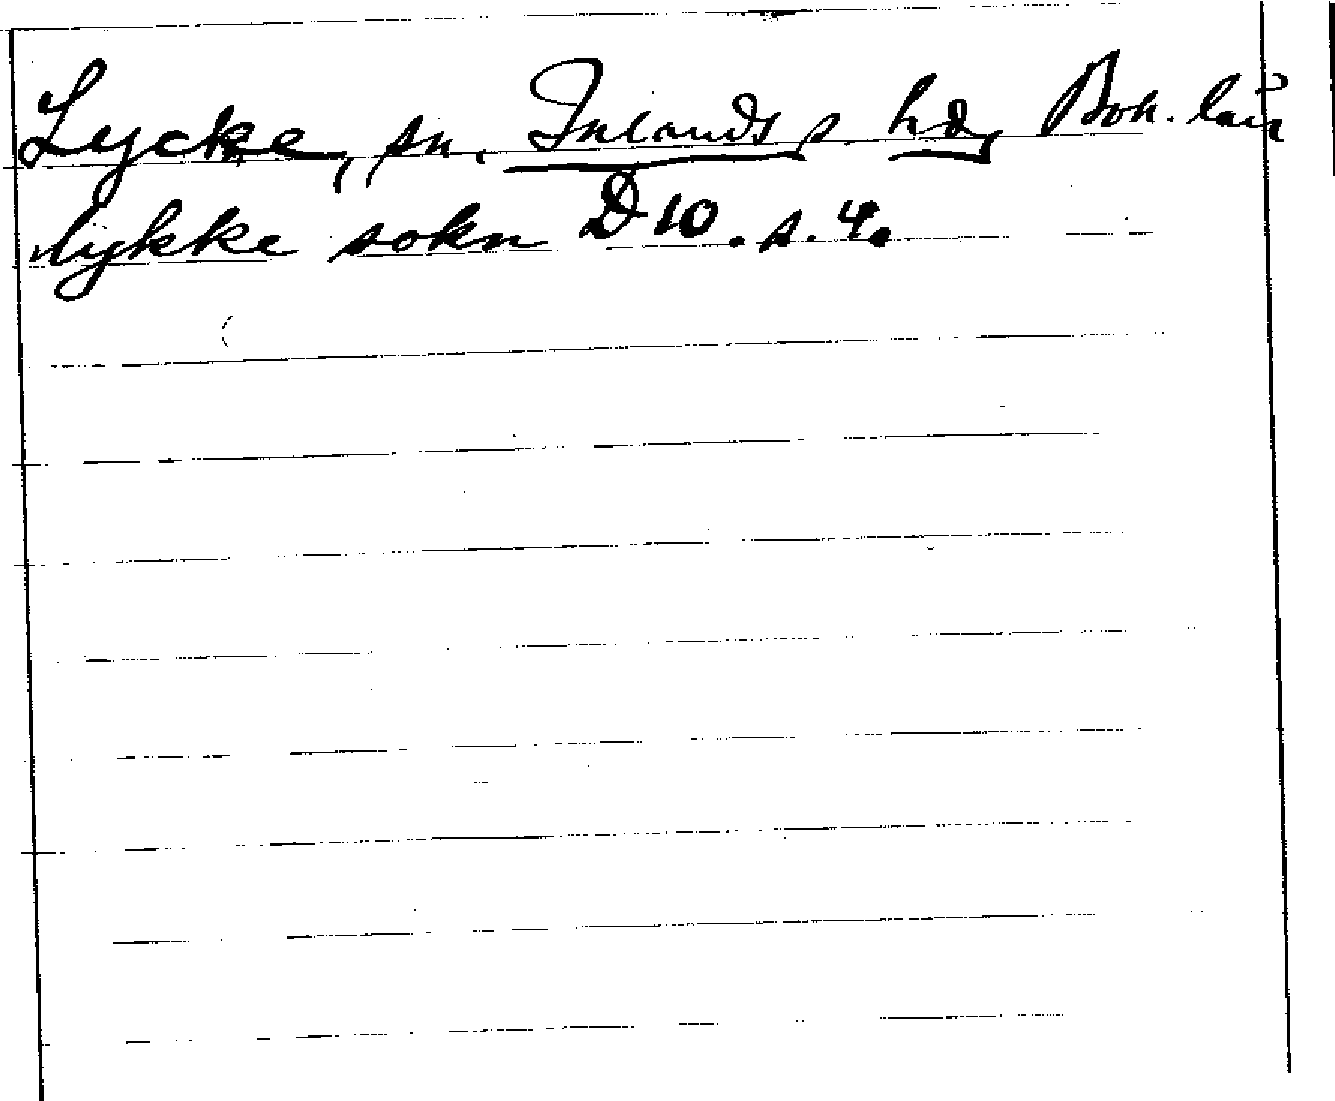 Lycke, sn. Inlands s hd, Boh. län
lykke sokn D 10. s. 4.